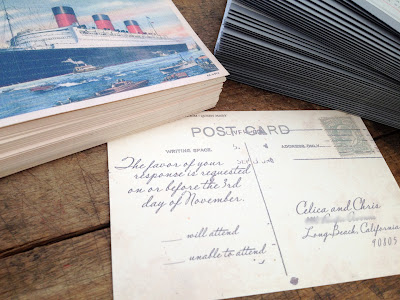 POST CARD
WRITING SPACE
ADDRESS ONLY
The favor of your
response is requested
on or before the 3rd
day of November.
will attend
unable to attend
Celica and Chris
Long Beach, California
90805